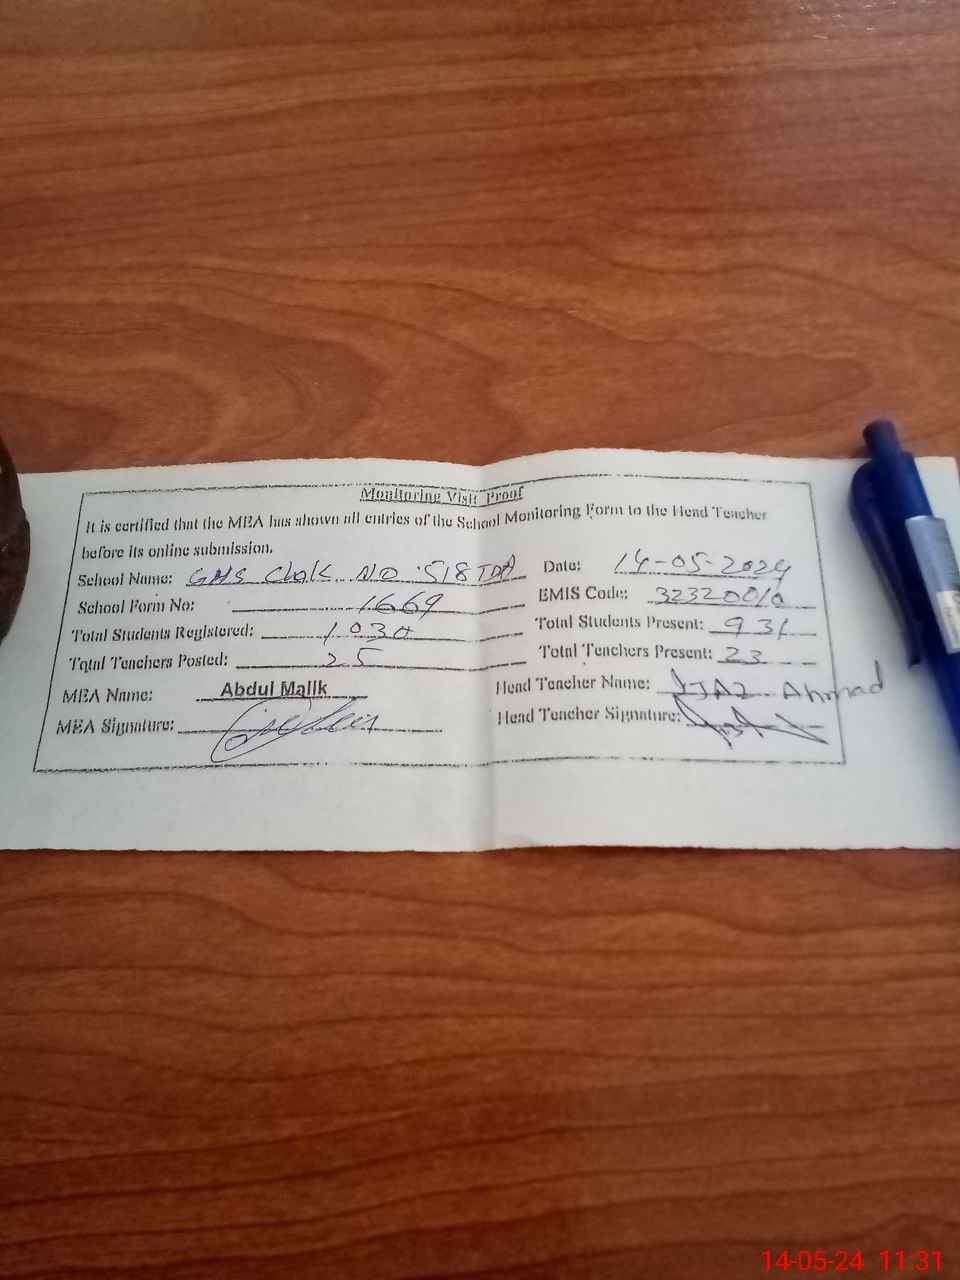 Monitoring Visit Proof
It is certified that the MEA has shown all entries of the School Monitoring Form to the Head Teacher
before its online submission.
School Name: GHS Chak NO 518 TDA Date: 14-05-2024
School Form No: 1669 EMIS Code: 32320010
Total Students Registered: 1030 Total Students Present: 931
Total Teachers Posted: 25 Total Teachers Present: 23
MEA Name: Abdul Malik Head Teacher Name: IJAZ Ahmad
MEA Signature: Head Teacher Signature:
14-05-24 11:31